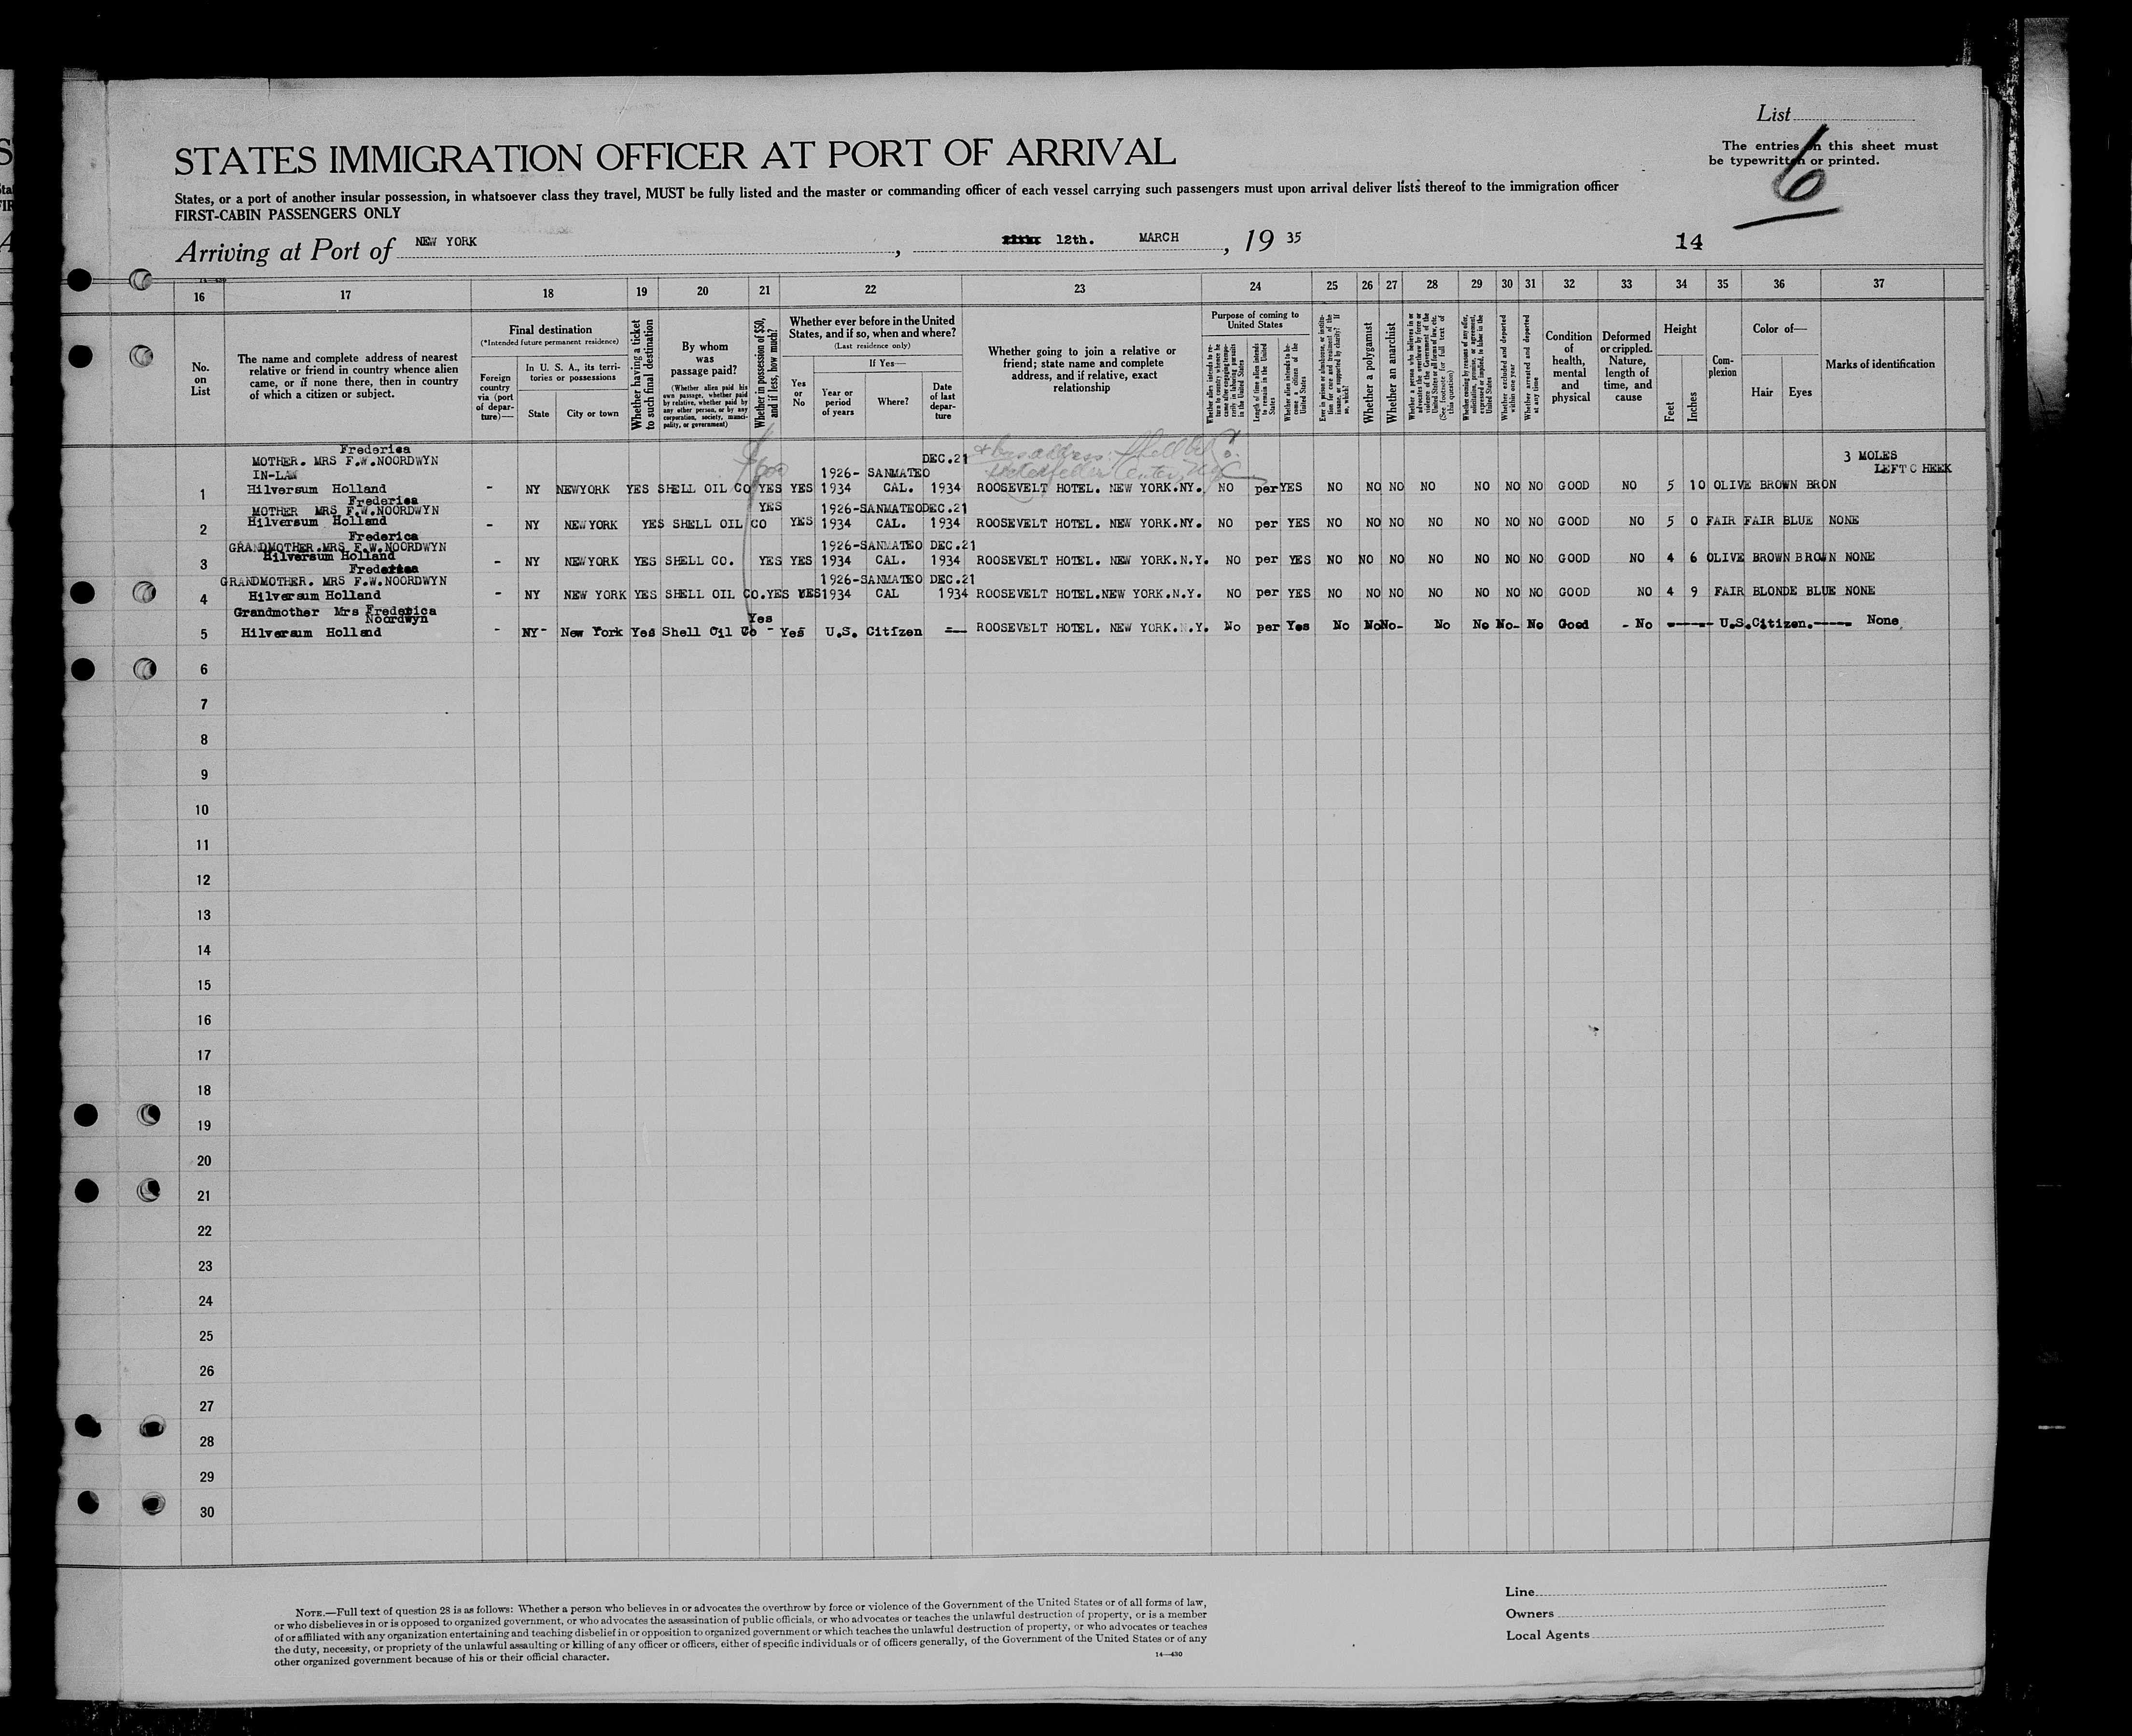 List
The entries on this sheet must
be typewritten or printed.
6
STATES IMMIGRATION OFFICER AT PORT OF ARRIVAL
States, or a port of another insular possession, in whatsoever class they travel, MUST be fully listed and the master or commanding officer of each vessel carrying such passengers must upon arrival deliver lists thereof to the immigration officer
FIRST-CABIN PASSENGERS ONLY
Arriving at Port of NEW YORK, 12th. MARCH, 19 35
14
16 17 18 19 20 21 22 23 24 25 26 27 28 29 30 31 32 33 34 35 36 37
No. on List
The name and complete address of nearest
relative or friend in country whence alien
came, or if none there, then in country
of which a citizen or subject.
Final destination
(*Intended future permanent residence)
Foreign country via (port of departure)—
In U. S. A., its territories or possessions
State
City or town
Whether having a ticket to such final destination
By whom was passage paid?
(Whether alien paid his own passage, whether paid by relative, whether paid by any other person, or by any corporation, society, municipality, or government)
Whether in possession of $50, and if less, how much?
Whether ever before in the United
States, and if so, when and where?
(Last residence only)
Yes or No
If Yes—
Year or period of years
Where?
Date of last departure
Whether going to join a relative or
friend; state name and complete
address, and if relative, exact
relationship
Purpose of coming to
United States
Whether alien intends to return to country whence he came after engaging temporarily in laboring pursuits in the United States
Length of time alien intends to remain in the United States
Whether alien intends to become a citizen of the United States
Ever in prison or almshouse, or institution for care and treatment of the insane, or supported by charity? If so, which?
Whether a polygamist
Whether an anarchist
Whether a person who believes in or advocates the overthrow by force or violence of the Government of the United States or all forms of law, etc. (See footnote for full text of this question)
Whether coming by reason of any offer, solicitation, promise, or agreement, expressed or implied, to labor in the United States
Whether excluded and deported within one year
Whether arrested and deported at any time
Condition of health, mental and physical
Deformed or crippled. Nature, length of time, and cause
Height
Feet
Inches
Complexion
Color of—
Hair
Eyes
Marks of identification
Frederica
MOTHER. MRS F.W.NOORDWYN DEC.21 3 MOLES
IN-LAW 1926- SANMATEO LEFT C HEEK
1 Hilversum Holland - NY NEWYORK YES SHELL OIL CO YES YES 1934 CAL. 1934 ROOSEVELT HOTEL. NEW YORK.NY. NO per YES NO NO NO NO NO NO NO GOOD NO 5 10 OLIVE BROWN BRON
Frederica
MOTHER MRS F.W.NOORDWYN YES 1926-SANMATEO DEC.21
2 Hilversum Holland - NY NEWYORK YES SHELL OIL CO YES 1934 CAL. 1934 ROOSEVELT HOTEL. NEW YORK.NY. NO per YES NO NO NO NO NO NO NO GOOD NO 5 0 FAIR FAIR BLUE NONE
Frederica
GRANDMOTHER.MRS F.W.NOORDWYN 1926-SANMATEO DEC.21
3 Hilversum Holland - NY NEWYORK YES SHELL CO. YES YES 1934 CAL. 1934 ROOSEVELT HOTEL. NEW YORK.N.Y. NO per YES NO NO NO NO NO NO NO GOOD NO 4 6 OLIVE BROWN BROWN NONE
Frederica
GRANDMOTHER. MRS F.W.NOORDWYN 1926-SANMATEO DEC.21
4 Hilversum Holland - NY NEW YORK YES SHELL OIL CO. YES YES 1934 CAL 1934 ROOSEVELT HOTEL.NEW YORK.N.Y. NO per YES NO NO NO NO NO NO NO GOOD NO 4 9 FAIR BLONDE BLUE NONE
Grandmother Mrs Frederica
Noordwyn Yes
5 Hilversum Holland - NY- New York Yes Shell Oil Co - Yes U.S. Citizen ROOSEVELT HOTEL. NEW YORK.N.Y. No per Yes No No No- No No No- No Good - No U.S.Citizen. None
6
7
8
9
10
11
12
13
14
15
16
17
18
19
20
21
22
23
24
25
26
27
28
29
30
NOTE.—Full text of question 28 is as follows: Whether a person who believes in or advocates the overthrow by force or violence of the Government of the United States or of all forms of law,
or who disbelieves in or is opposed to organized government, or who advocates the assassination of public officials, or who advocates or teaches the unlawful destruction of property, or is a member
of or affiliated with any organization entertaining and teaching disbelief in or opposition to organized government or which teaches the unlawful destruction of property, or who advocates or teaches
the duty, necessity, or propriety of the unlawful assaulting or killing of any officer or officers, either of specific individuals or of officers generally, of the Government of the United States or of any
other organized government because of his or their official character.
14—430
Line
Owners
Local Agents